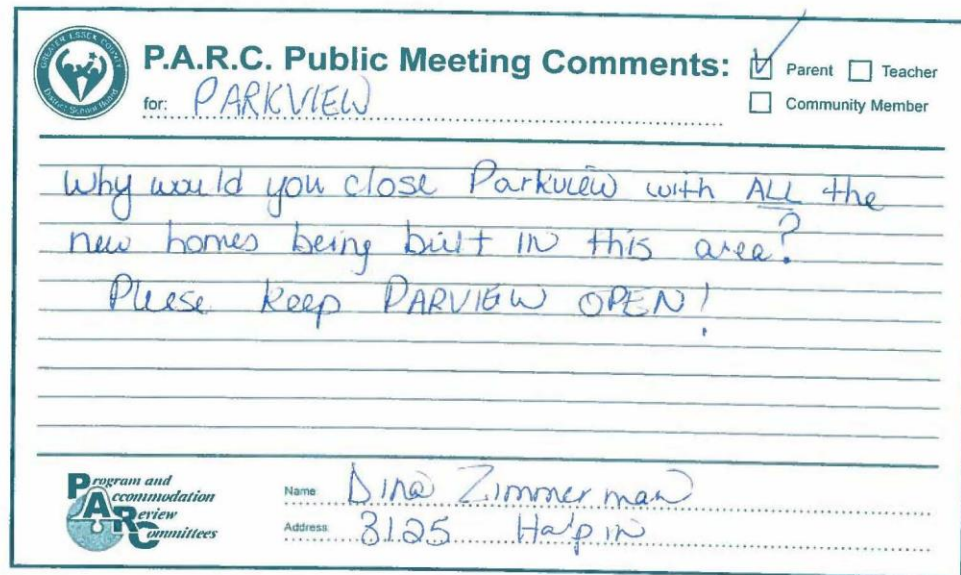 GREATER ESSEX COUNTY
District School Board
P.A.R.C. Public Meeting Comments:
Parent
Teacher
for: PARKVIEW
Community Member
Why would you close Parkview with ALL the
new homes being built in this area?
Plese keep PARVIEW OPEN!
Program and
Accommodation
Review
Committees
Name Dina Zimmerman
Address: 3125 Halpin